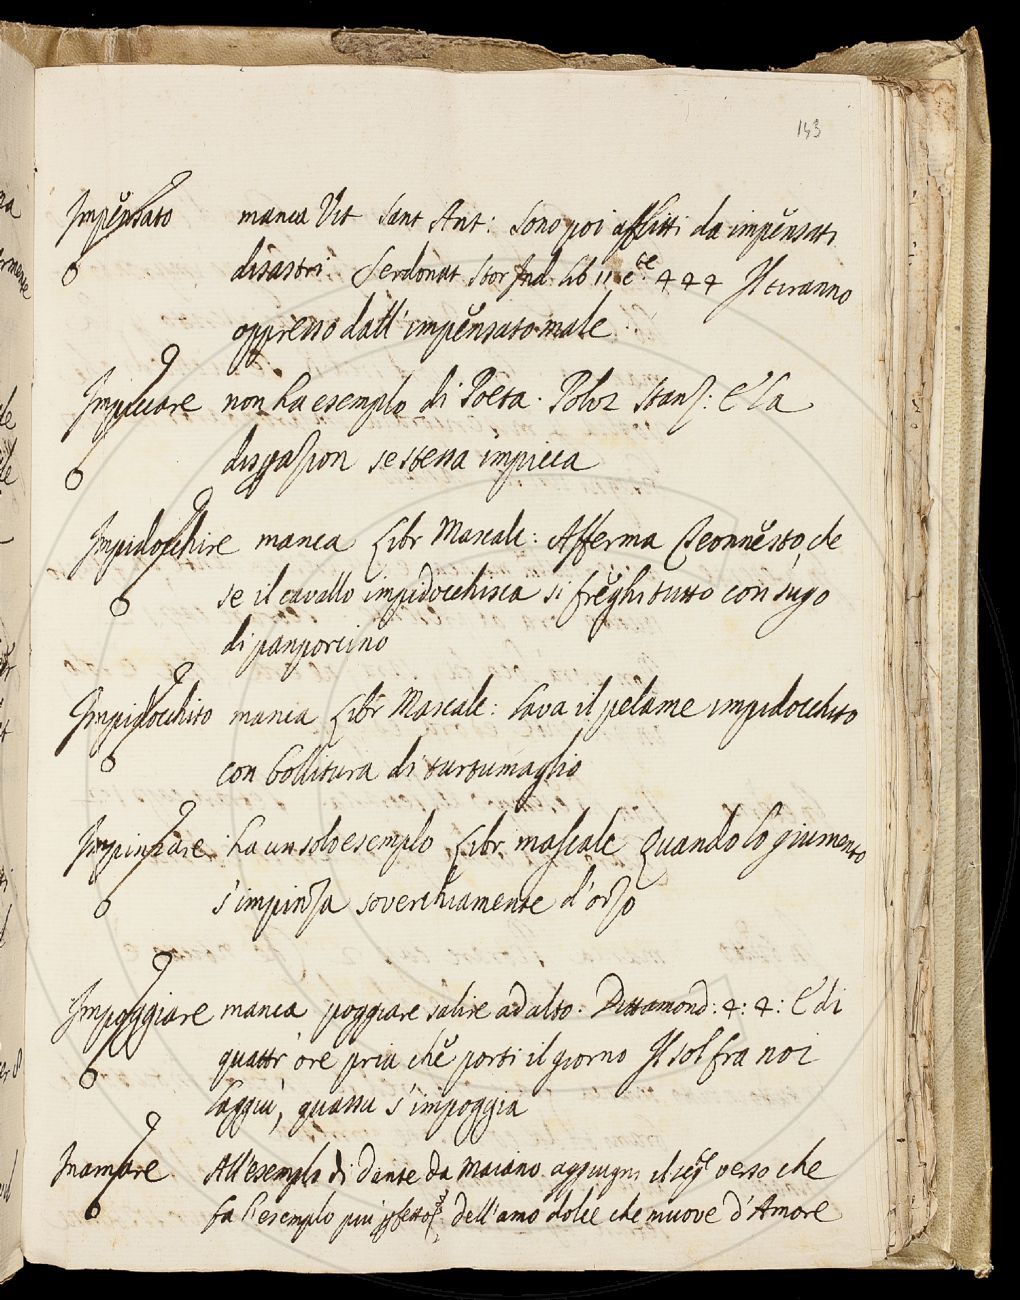 143
Impensato manca Vit Sant Ant: Sono poi afflitti da impensati
disastri. Serdonat Stor Ind. lib 11 cte. 444 Il tiranno
oppresso dall'impensato male
Impiccare non ha esempio di Poeta. Poliz Stanz: E la
disperazion se stessa impicca
Impidocchire manca Libr Mascalc: Afferma che
se il cavallo impidocchisca si freghi tutto con sugo
di panporcino
Impidocchito manca Libr Mascalc: Lava il pelame impidocchito
con bollitura di turtumaglio
Impinzare ha un solo esempio Libr. mascalc Quando lo giumento
s'impinza soverchiamente d'orzo
Impoggiare manca poggiare salire ad alto. Dittamond: 4: 4: E di
quattr'ore pria che porti il giorno Il sol fra noi
laggiù, quassu s'impoggia
Inamare All'esemplo di Dante da Maiano aggiugni il seg.e verso che
fa l'esemplo piu dell'amo dolce che muove d'Amore